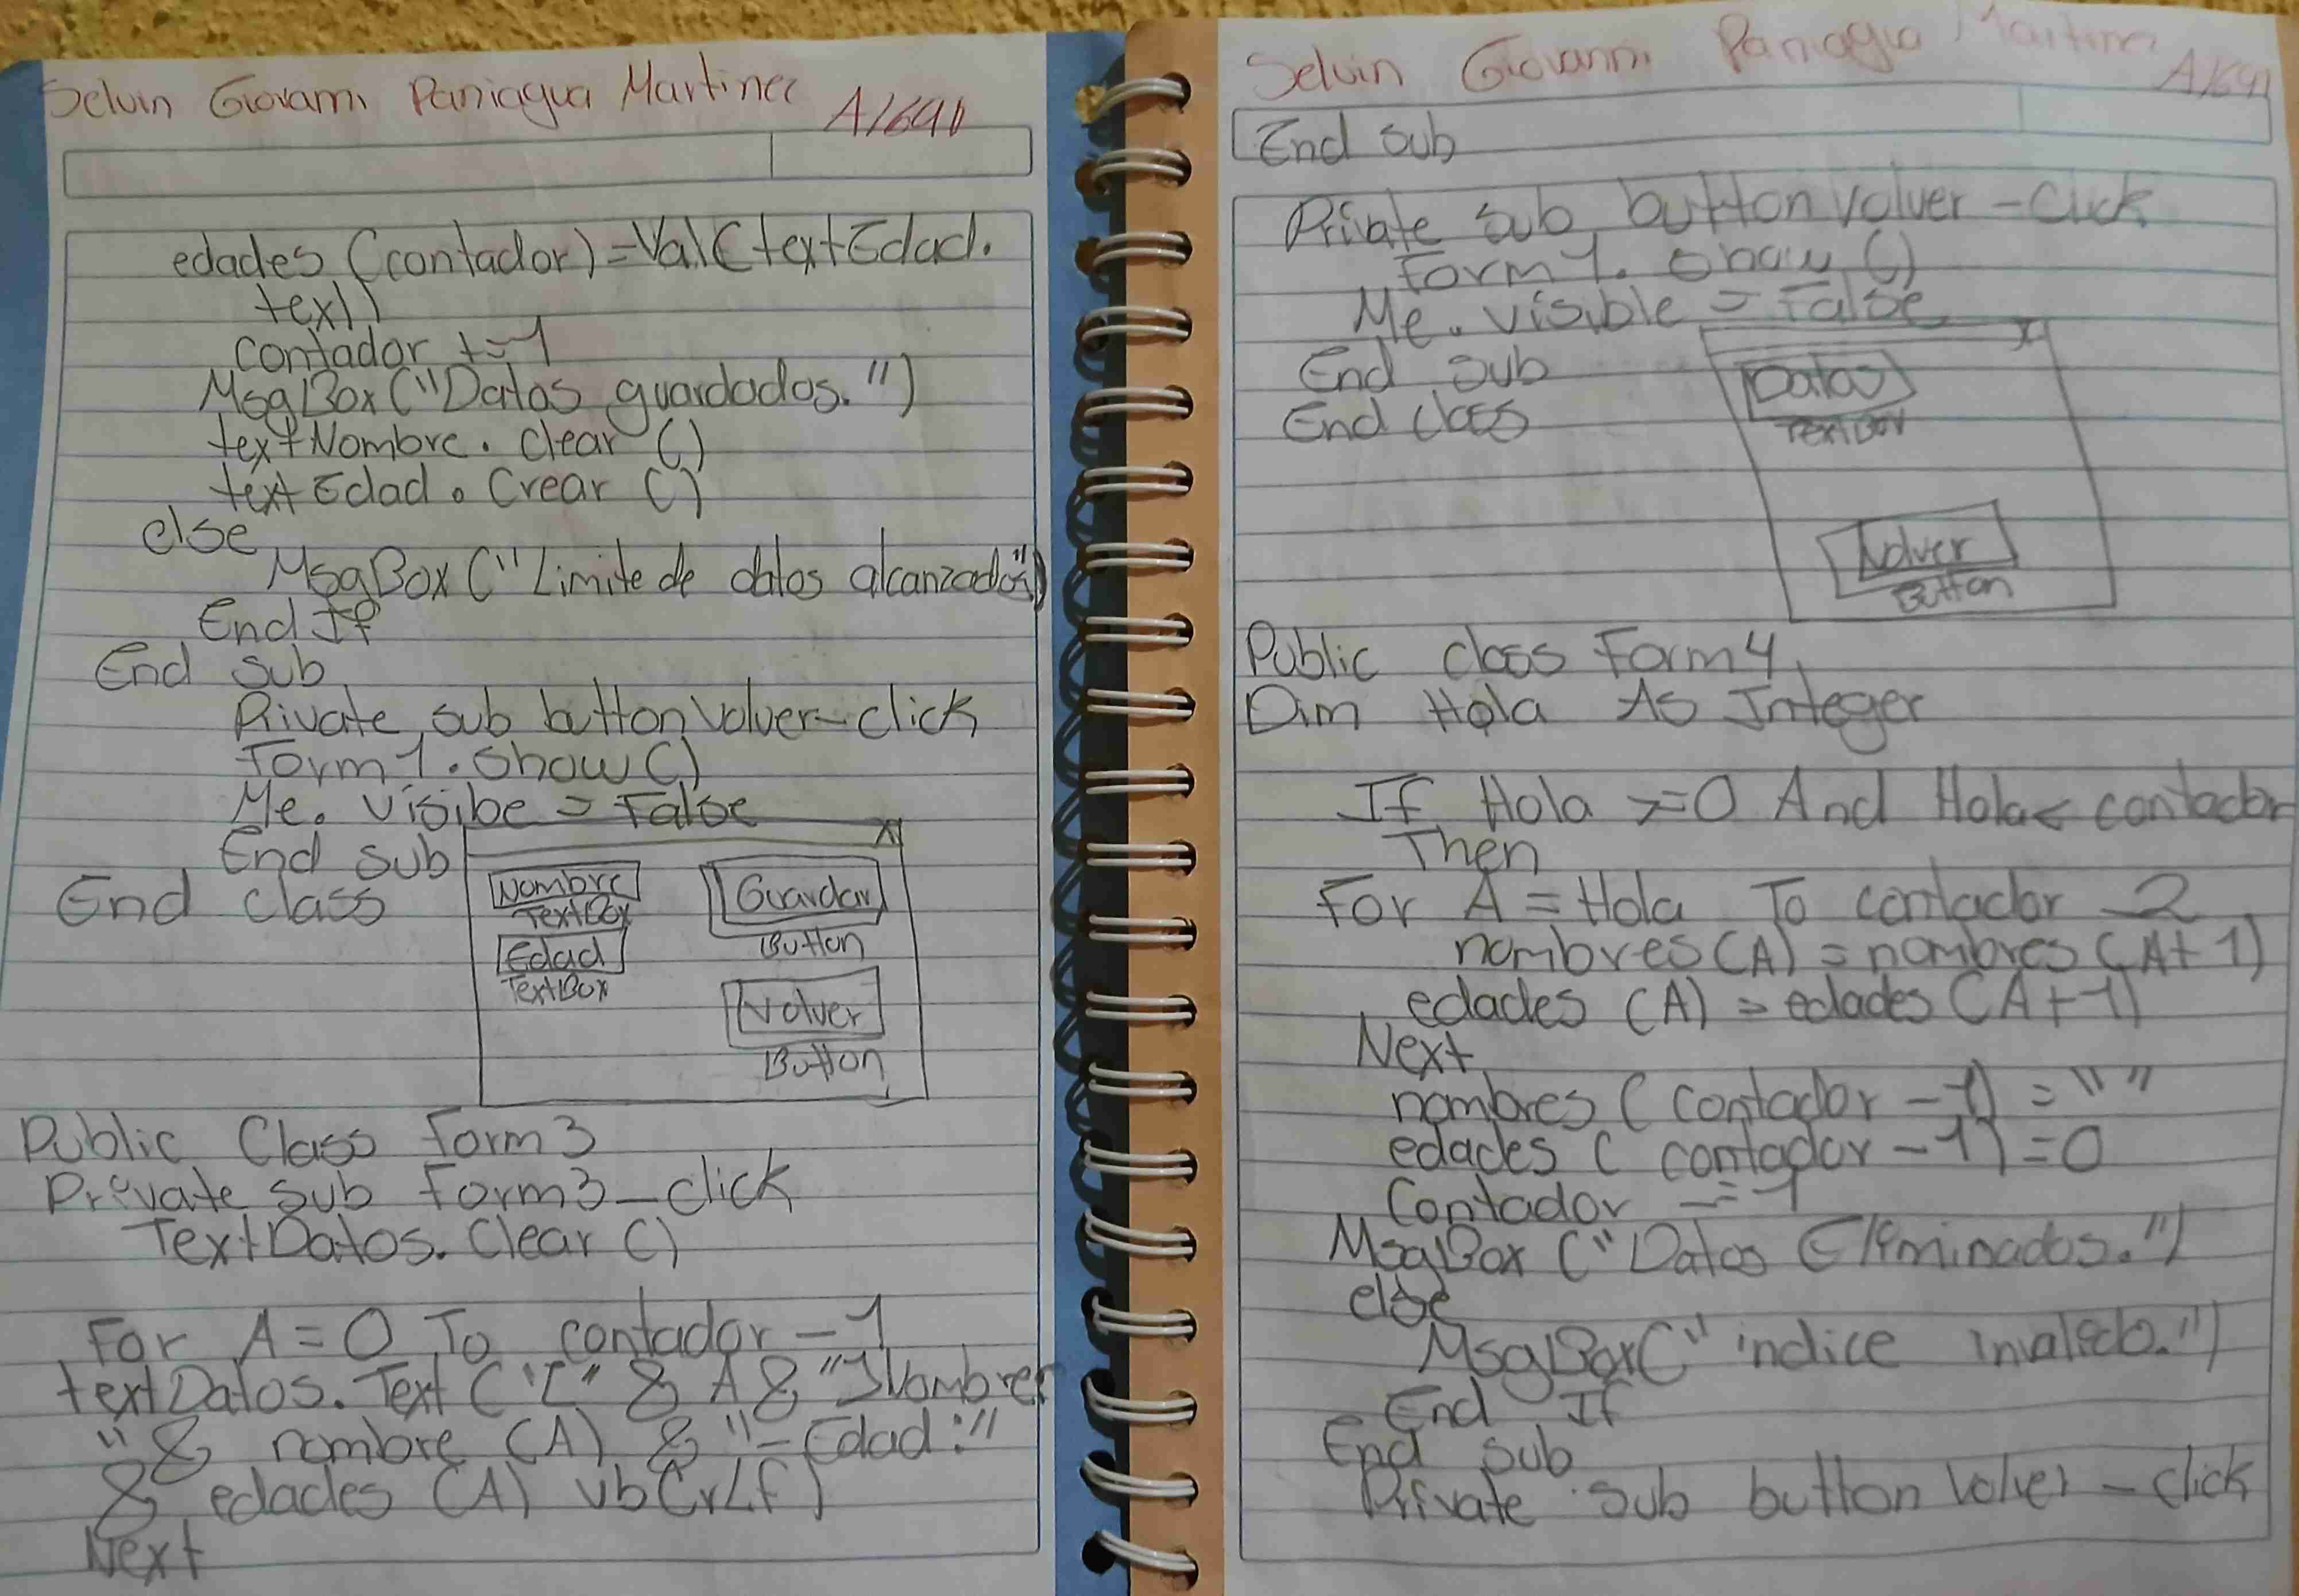 Selvin Giovanni Paniagua Martinez A1691
edades (contador) = Val(textEdad.
text)
contador += 1
MsgBox ("Datos guardados.")
textNombre. Clear ()
textEdad. Crear ()
else
MsgBox ("Limite de datos alcanzados")
End If
End sub
Private sub button Volver-click
Form 1. Show ()
Me. Visibe = False
End sub
End class
Nombre
TextBox
Edad
TextBox
Guardar
Button
Volver
Button
Public Class Form3
Private sub Form3_click
TextDatos. Clear ()
For A = 0 To contador - 1
textDatos. Text ("[" & A & "] Nombre:
" & nombre (A) & "- Edad:"
& edades (A) vbCrLf)
Next
Selvin Giovanni Paniagua Martinez A1691
End sub
Private sub button Volver - Click
Form 1. Show ()
Me. visible = False
End sub
End class
Datos
TextBox
Volver
Button
Public class Form4
Dim Hola As Integer
If Hola >= 0 And Hola < contador
Then
For A = Hola To contador - 2
nombres (A) = nombres (A + 1)
edades (A) = edades (A + 1)
Next
nombres ( contador - 1) = " "
edades ( contador - 1) = 0
Contador -= 1
MsgBox ("Datos Eliminados.")
else
MsgBox (" indice invalido.")
End If
End sub
Private sub button Volver - click